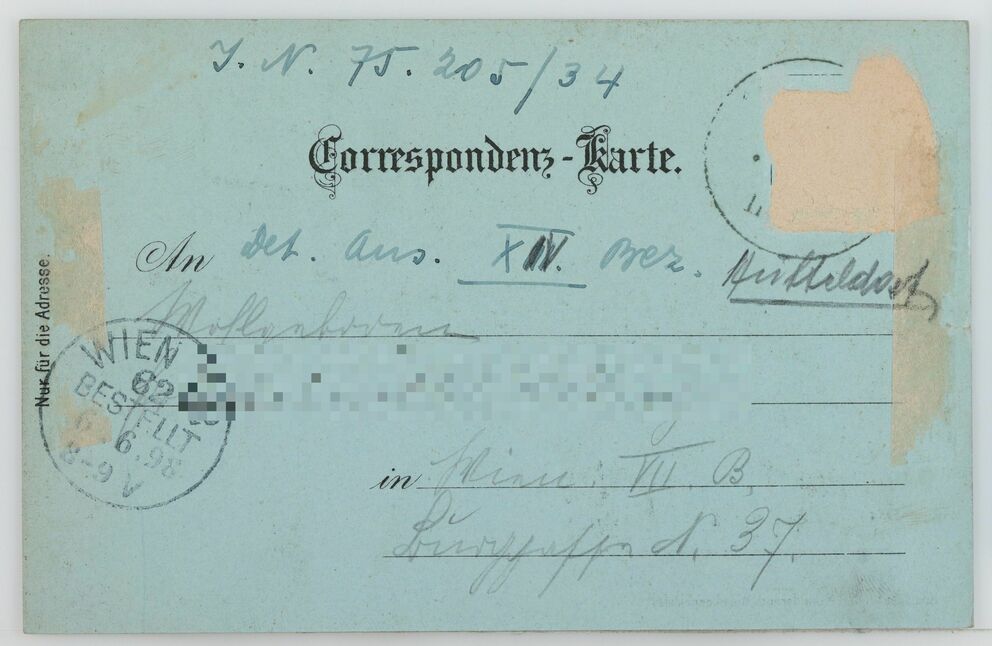 J. N. 75.205/34
Correspondenz-Karte.
An Det. Aus. XIV. Bez. Hütteldorf
Wohlgeboren
Nur für die Adresse.
WIEN
62
BESTELLT
6.98
8-9 V
in Wien VII. B.
Burggasse N. 37.